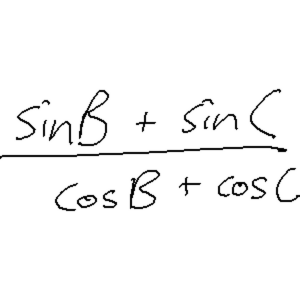 sinB + sin C
cosB + cosC